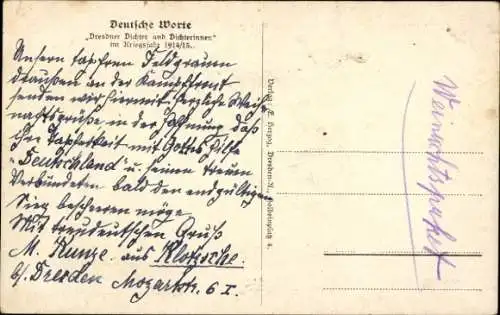 Deutsche Worte
„Dresdner Dichter und Dichterinnen"
im Kriegsjahr 1914/15.
Unsern tapfren Feldgrauen
draußen an der Kampffront
senden wir hiermit herzliche Weih-
nachtsgrüße in der Hoffnung daß
Ihre Tapferkeit mit Gottes Hilfe
„Deutschland" u. seinen treuen
Verbündeten bald den endgültigen
Sieg bescheeren möge.
Mit treudeutschen Gruß
M. Kunze aus Klotzsche
b/ Dresden Mozartstr. 6 I.
Verlag: E. Herzog, Dresden-N., Holbeinplatz 4.
Weinachtspaket